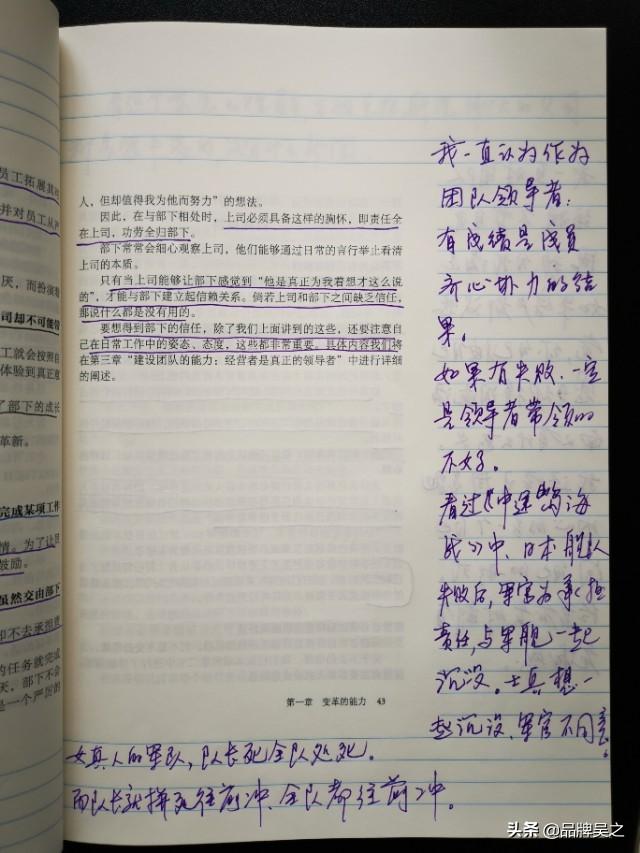 员工拓展其
并对员工从严
厌，而扮演着
司却不可能
工就会按照自
体验到真正意
了部下的成长
革新。
完成某项工作
情。为了让员
鼓励。
虽然交由部下
却不去承担责
的任务就完成
天，部下不会
是一个严厉的
人，但却值得我为他而努力”的想法。
因此，在与部下相处时，上司必须具备这样的胸怀，即责任全
在上司，功劳全归部下。
部下常常会细心观察上司，他们能够通过日常的言行举止看清
上司的本质。
只有当上司能够让部下感觉到“他是真正为我着想才这么说
的”，才能与部下建立起信赖关系。倘若上司和部下之间缺乏信任，
那说什么都是没有用的。
要想得到部下的信任，除了我们上面讲到的这些，还要注意自
己在日常工作中的姿态、态度，这些都非常重要。具体内容我们将
在第三章“建设团队的能力：经营者是真正的领导者”中进行详细
的阐述。
第一章 变革的能力 43
我一直认为作为
团队领导者：
有成绩是成员
齐心协力的结
果。
如果有失败，一定
是领导者带领的
不好。
看过《中途岛海
战》中，日本舰队
失败后，军官为承担
责任，与军舰一起
沉没。士兵想一
起沉没，军官不同意。
女真人的军队，队长死全队处死。
而队长就拼死往前冲，全队都往前冲。
头条 @品牌吴之